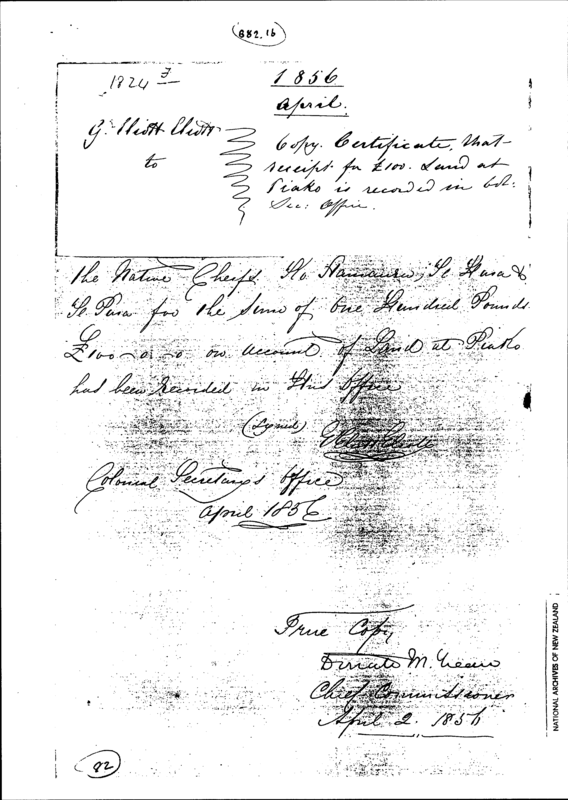 682.16
1856
April.
1824
G. Eliott Eliott
to
Copy. Certificate, that
receipt for £100. Land at
Piako is recorded in Col:
Sec: Office.
the Native Chiefs
Te Pura for the Sum of One Hundred Pounds
£100-0-0 on account of Land at Piako
had been Recorded in this Office
(Signed) G Eliott Eliott
Colonial Secretary's Office
April 1856
True Copy
Chief Commissioner
April 2. 1856
82
NATIONAL ARCHIVES OF NEW ZEALAND